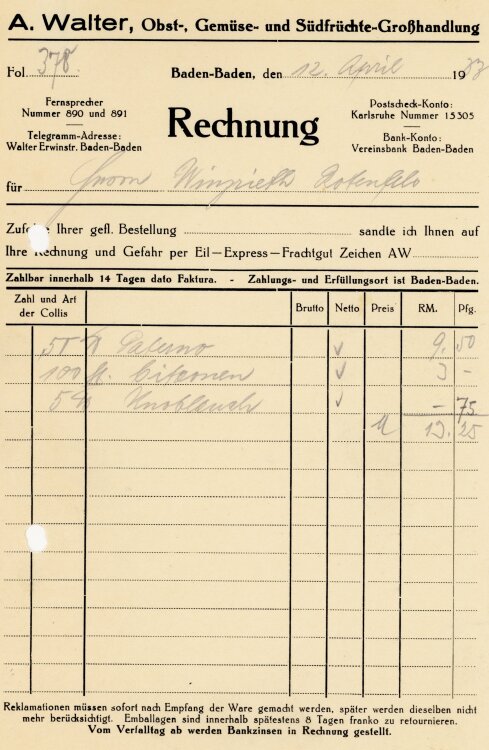 A. Walter, Obst-, Gemüse- und Südfrüchte-Großhandlung
Fol. 378 Baden-Baden, den 12. April 1933
Fernsprecher
Nummer 890 und 891
Telegramm-Adresse:
Walter Erwinstr. Baden-Baden
Rechnung
Postscheck-Konto:
Karlsruhe Nummer 15305
Bank-Konto:
Vereinsbank Baden-Baden
für Herrn
Ihrer gefl. Bestellung sandte ich Ihnen auf
Ihre Rechnung und Gefahr per Eil—Express—Frachtgut Zeichen AW
Zahlbar innerhalb 14 Tagen dato Faktura. - Zahlungs- und Erfüllungsort ist Baden-Baden.
Zahl und Art der Collis Brutto Netto Preis RM. Pfg.
Palerno 9. 50
100 st. Citronen 3 -
5 ℔ Knoblauch - 75
M 13. 25
Reklamationen müssen sofort nach Empfang der Ware gemacht werden, später werden dieselben nicht
mehr berücksichtigt. Emballagen sind innerhalb spätestens 8 Tagen franko zu retournieren.
Vom Verfalltag ab werden Bankzinsen in Rechnung gestellt.